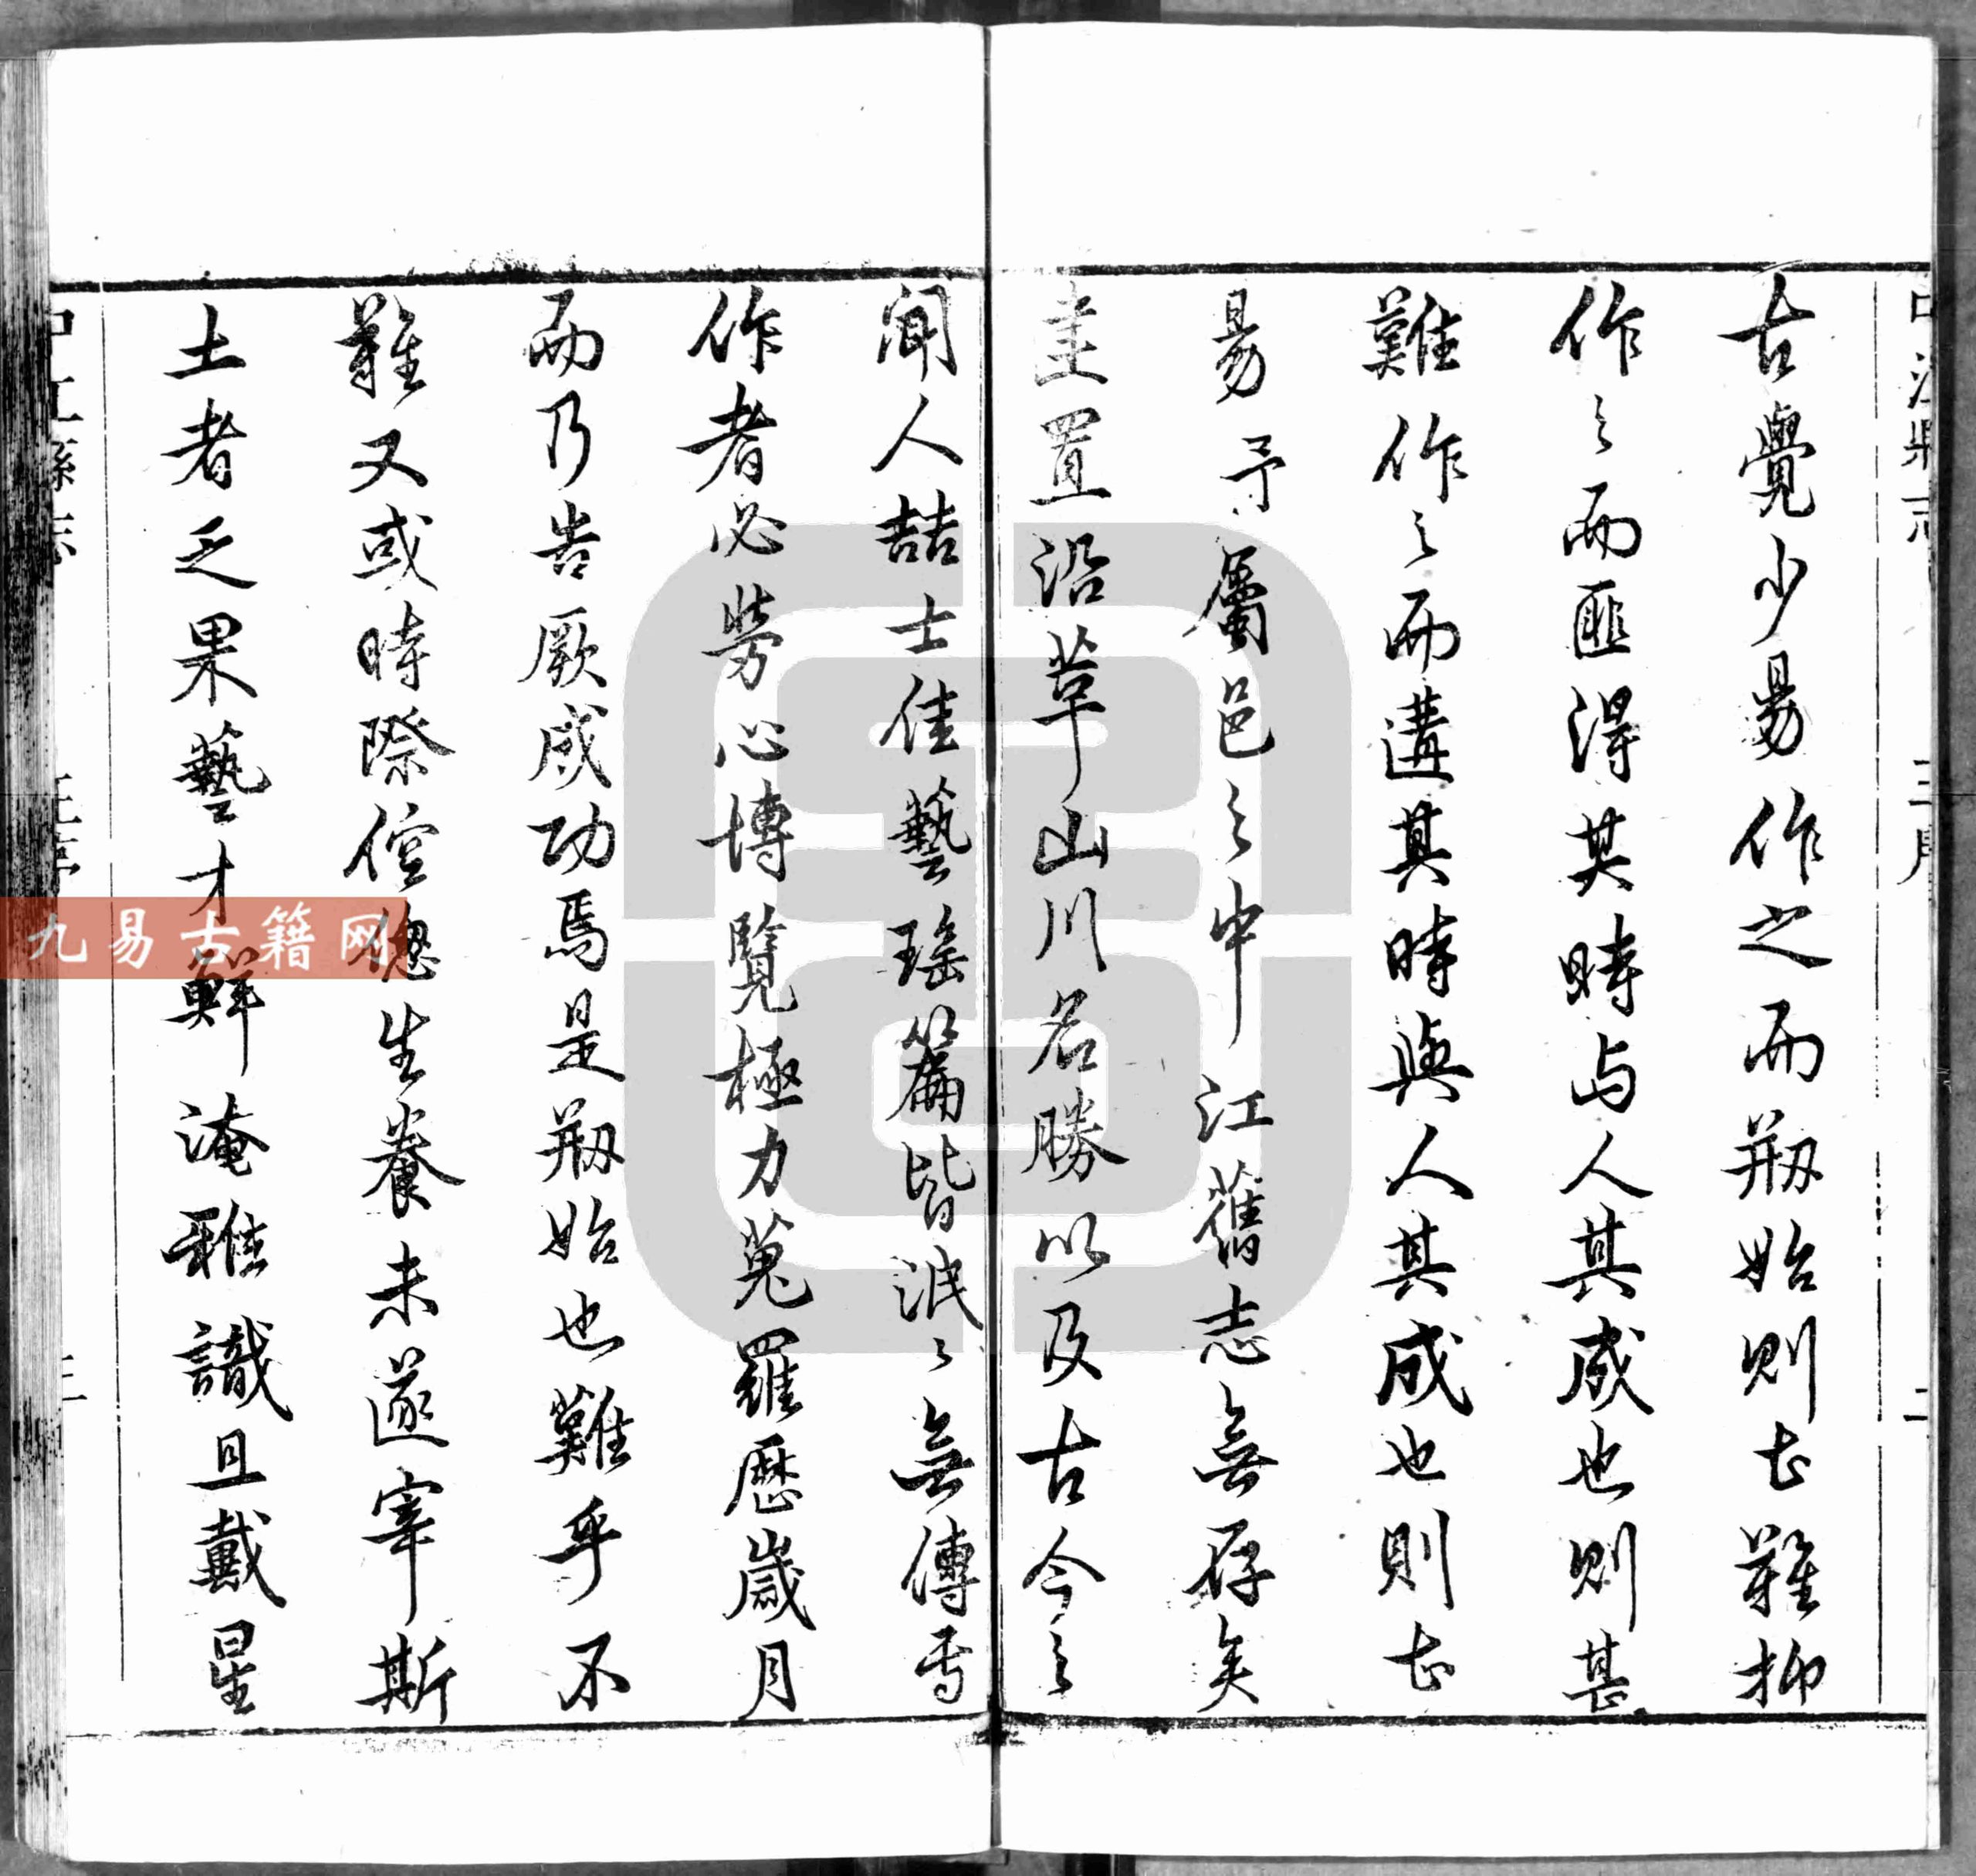 古覺少易作之而剏始則尤難抑
作之而匪得其時与人其成也則甚
難作之而遘其時與人其成也則尤
易予屬邑之中江舊志無存矣
建置沿革山川名勝以及古今之
聞人喆士佳藝瑤篇皆泯〻無傳焉
作者必勞心博覽極力蒐羅歷歲月
而乃告厥成功焉是剏始也難乎不
難又或時際倥傯生養未遂宰斯
土者乏果藝才鮮淹雅識且戴星
九易古籍网